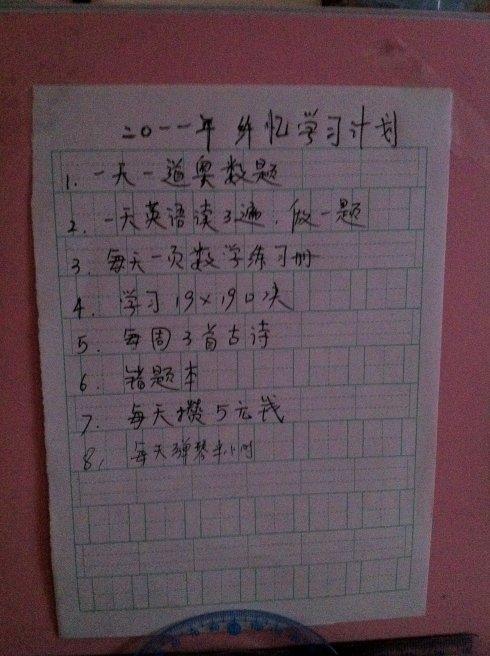 二〇一一年 忆学习计划
1. 一天一道奥数题
2. 一天英语读3遍.做一题
3. 每天一页数学练习册
4. 学习19×19口决
5. 每周3首古诗
6. 错题本
7. 每天攒5元钱
8. 每天弹琴半小时